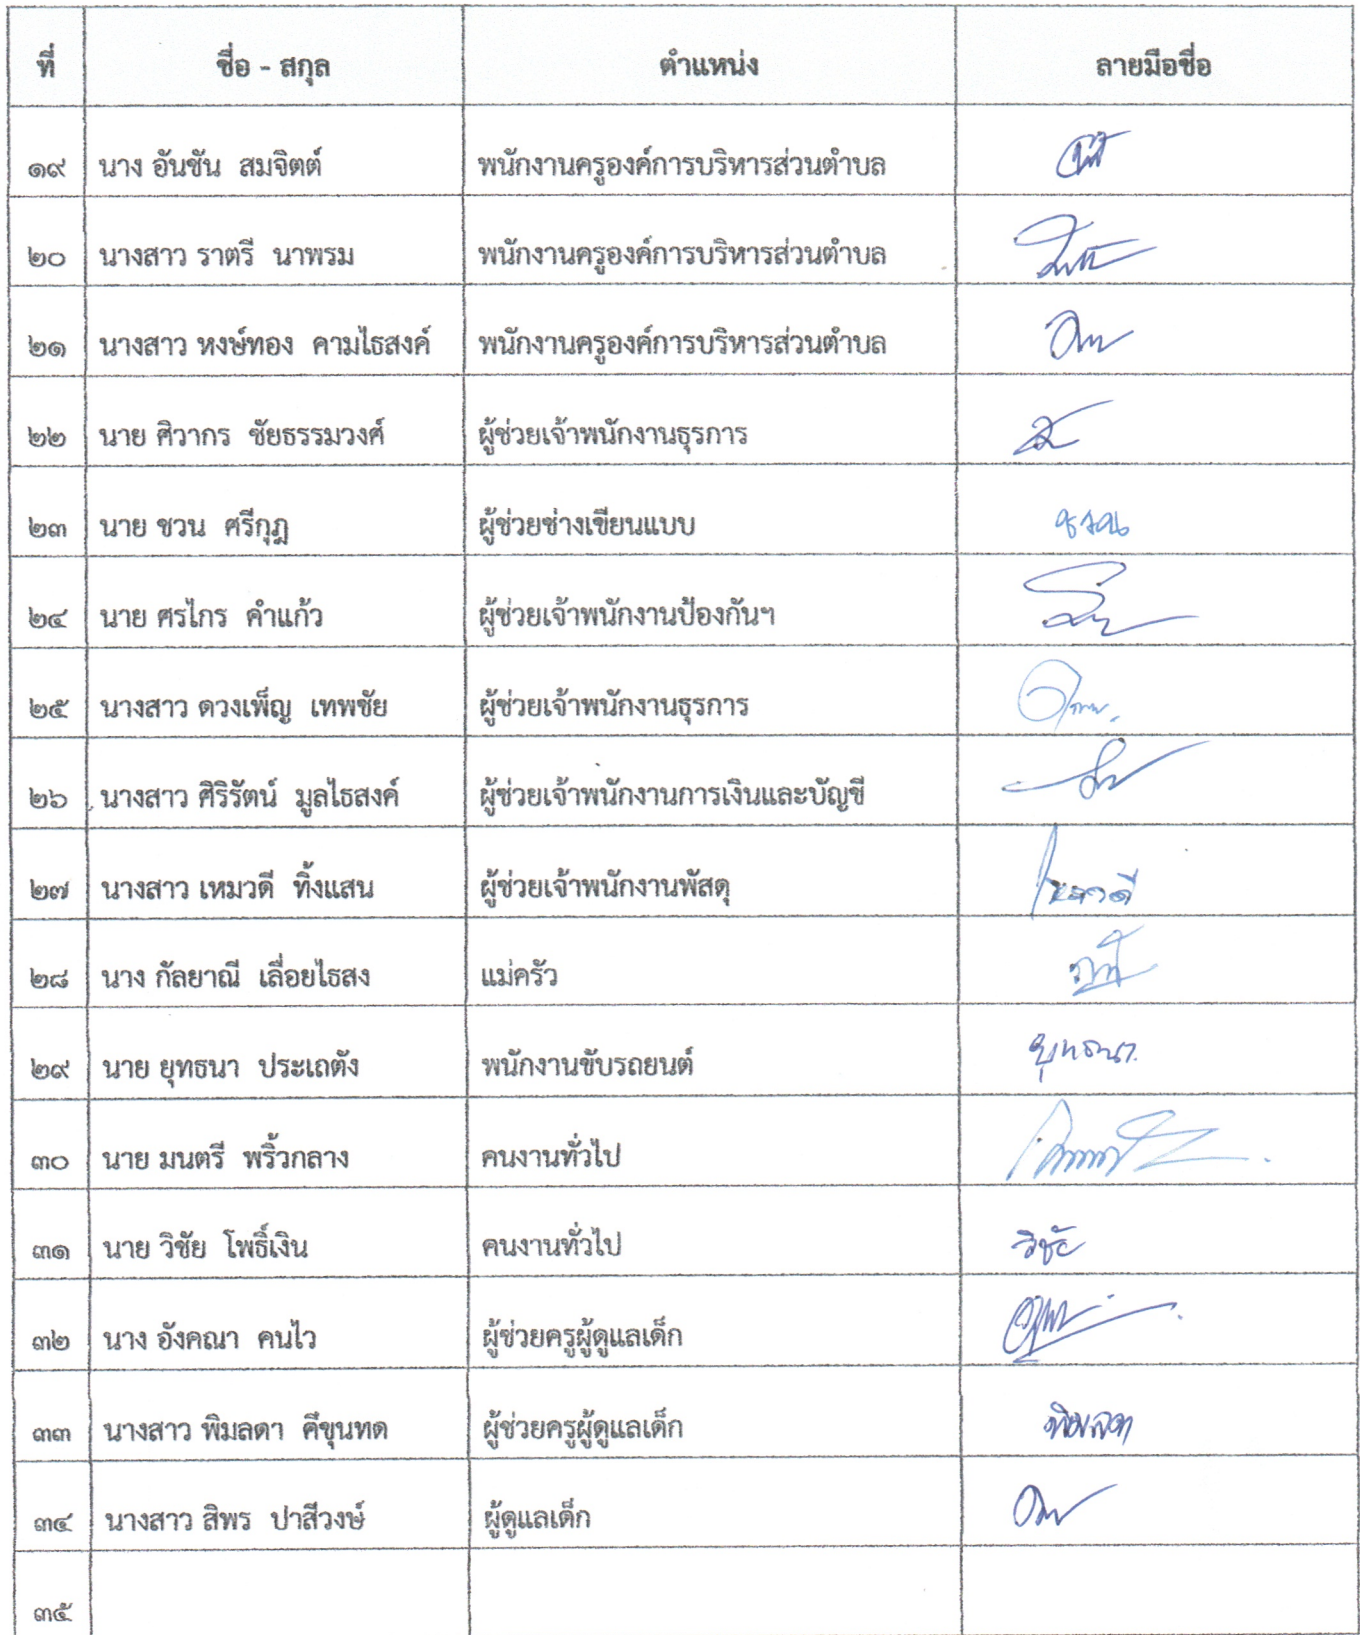 ที่ ชื่อ - สกุล ตำแหน่ง ลายมือชื่อ
๑๙ นาง อันชัน สมจิตต์ พนักงานครูองค์การบริหารส่วนตำบล
๒๐ นางสาว ราตรี นาพรม พนักงานครูองค์การบริหารส่วนตำบล
๒๑ นางสาว หงษ์ทอง คามไธสงค์ พนักงานครูองค์การบริหารส่วนตำบล
๒๒ นาย ศิวากร ชัยธรรมวงศ์ ผู้ช่วยเจ้าพนักงานธุรการ
๒๓ นาย ชวน ศรีกุฎ ผู้ช่วยช่างเขียนแบบ ชวน
๒๔ นาย ศรไกร คำแก้ว ผู้ช่วยเจ้าพนักงานป้องกันฯ
๒๕ นางสาว ดวงเพ็ญ เทพชัย ผู้ช่วยเจ้าพนักงานธุรการ
๒๖ นางสาว ศิริรัตน์ มูลไธสงค์ ผู้ช่วยเจ้าพนักงานการเงินและบัญชี
๒๗ นางสาว เหมวดี ทิ้งแสน ผู้ช่วยเจ้าพนักงานพัสดุ เหมวดี
๒๘ นาง กัลยาณี เลื่อยไธสง แม่ครัว
๒๙ นาย ยุทธนา ประเถตัง พนักงานขับรถยนต์ ยุทธนา
๓๐ นาย มนตรี พริ้วกลาง คนงานทั่วไป
๓๑ นาย วิชัย โพธิ์เงิน คนงานทั่วไป วิชัย
๓๒ นาง อังคณา คนไว ผู้ช่วยครูผู้ดูแลเด็ก
๓๓ นางสาว พิมลดา คีขุนทด ผู้ช่วยครูผู้ดูแลเด็ก พิมลดา
๓๔ นางสาว สิพร ปาสีวงษ์ ผู้ดูแลเด็ก
๓๕